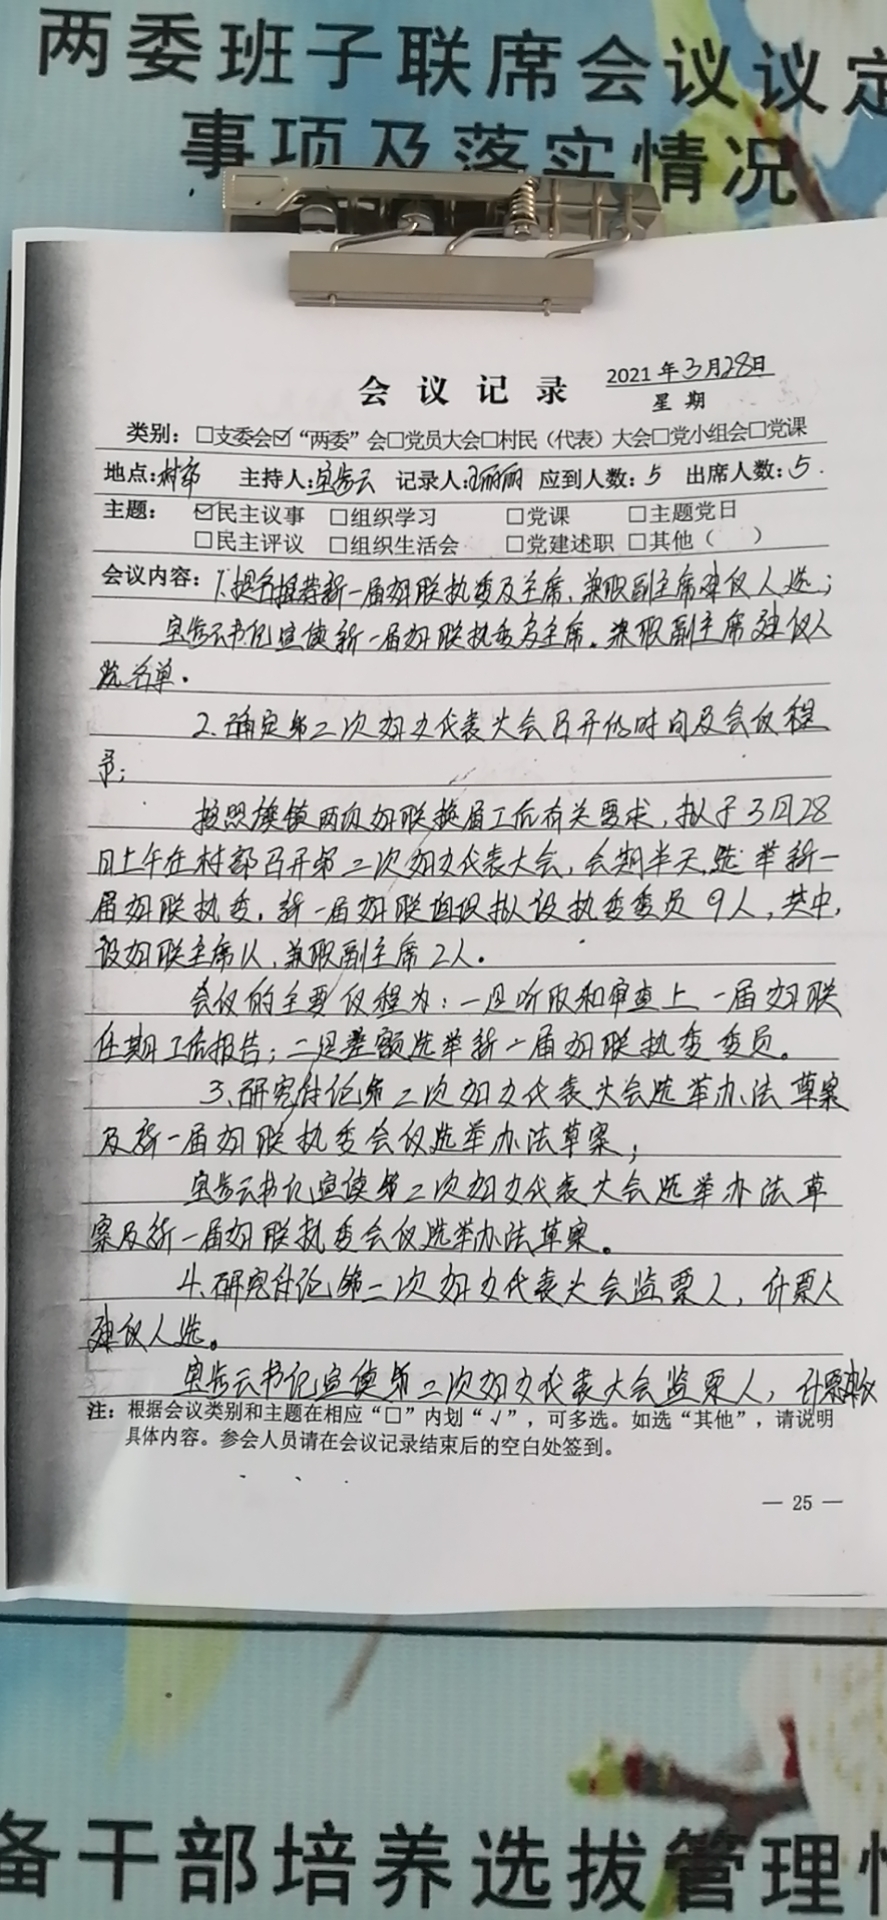 两委班子联席会议议定
事项及落实情况
会议记录
2021年3月28日
星期
类别：□支委会☑“两委”会□党员大会□村民（代表）大会□党小组会□党课
地点：村部 主持人： 记录人：王丽丽 应到人数：5 出席人数：5.
主题： ☑民主议事 □组织学习 □党课 □主题党日
□民主评议 □组织生活会 □党建述职 □其他（ ）
会议内容：1.提名推荐新一届妇联执委及主席、兼职副主席建议人选；
书记宣读新一届妇联执委及主席、兼职副主席建议人
选名单.
2.确定第二次妇女代表大会召开的时间及会议程
序；
按照旗镇两级妇联换届工作有关要求，拟于3月28
日上午在村部召开第二次妇女代表大会，会期半天，选举新一
届妇联执委，新一届妇联组织拟设执委委员9人，其中，
设妇联主席1人，兼职副主席2人.
会议的主要议程为：一是听取和审查上一届妇联
任期工作报告；二是差额选举新一届妇联执委委员。
3.研究讨论第二次妇女代表大会选举办法草案
及新一届妇联执委会议选举办法草案；
书记宣读第二次妇女代表大会选举办法草
案及新一届妇联执委会议选举办法草案。
4.研究讨论第二次妇女代表大会监票人，计票人
建议人选。
书记宣读第二次妇女代表大会监票人，计票建议
注：根据会议类别和主题在相应“□”内划“√”，可多选。如选“其他”，请说明
具体内容。参会人员请在会议记录结束后的空白处签到。
— 25 —
备干部培养选拔管理情